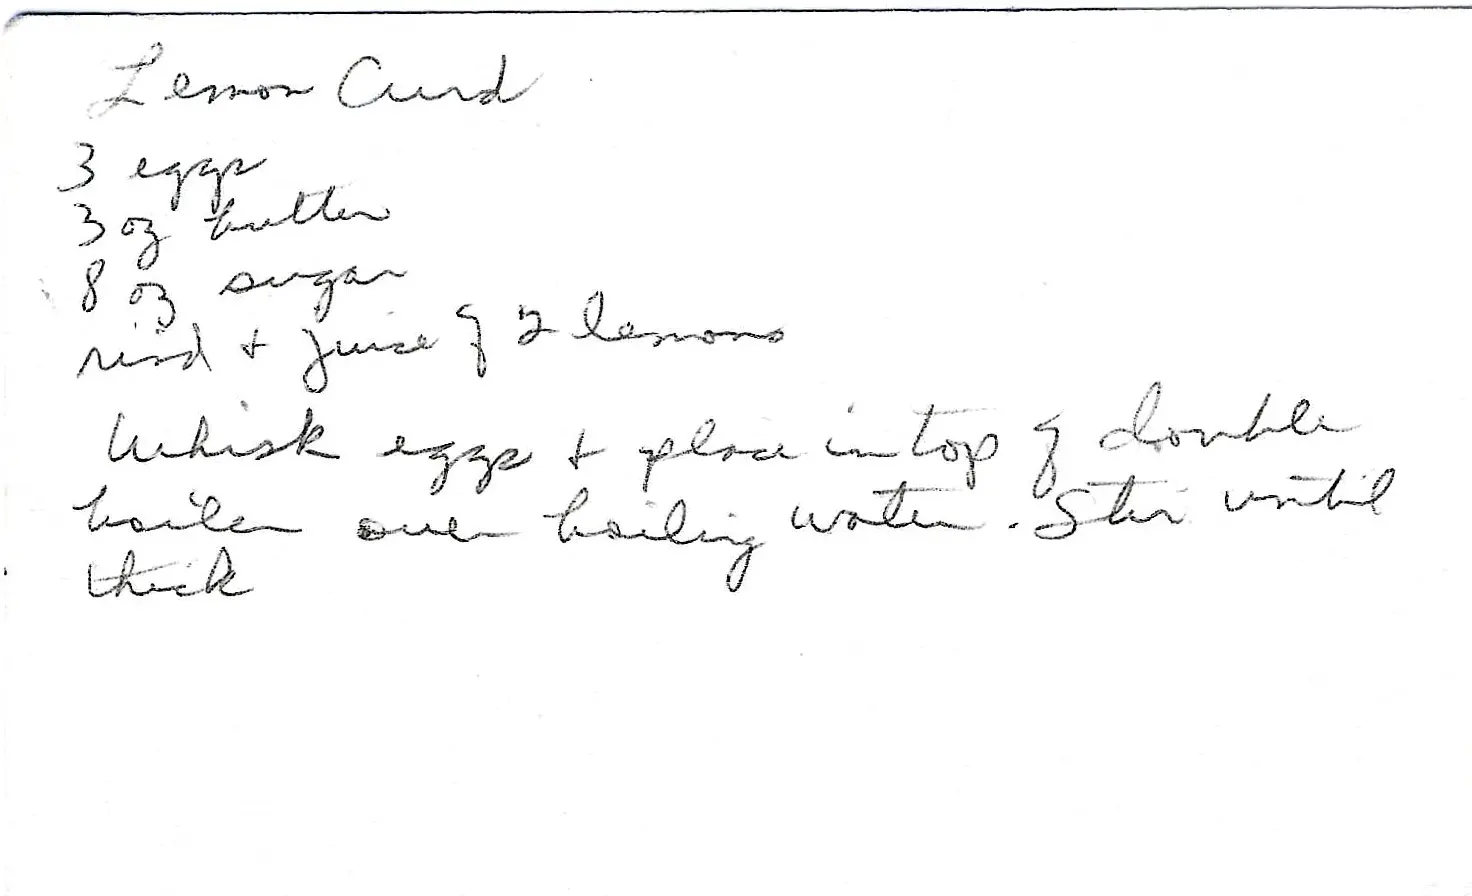 Lemon Curd
3 eggs
3 oz butter
8 oz sugar
rind + juice of 2 lemons
Whisk eggs + place in top of double
boiler over boiling water. Stir until
thick